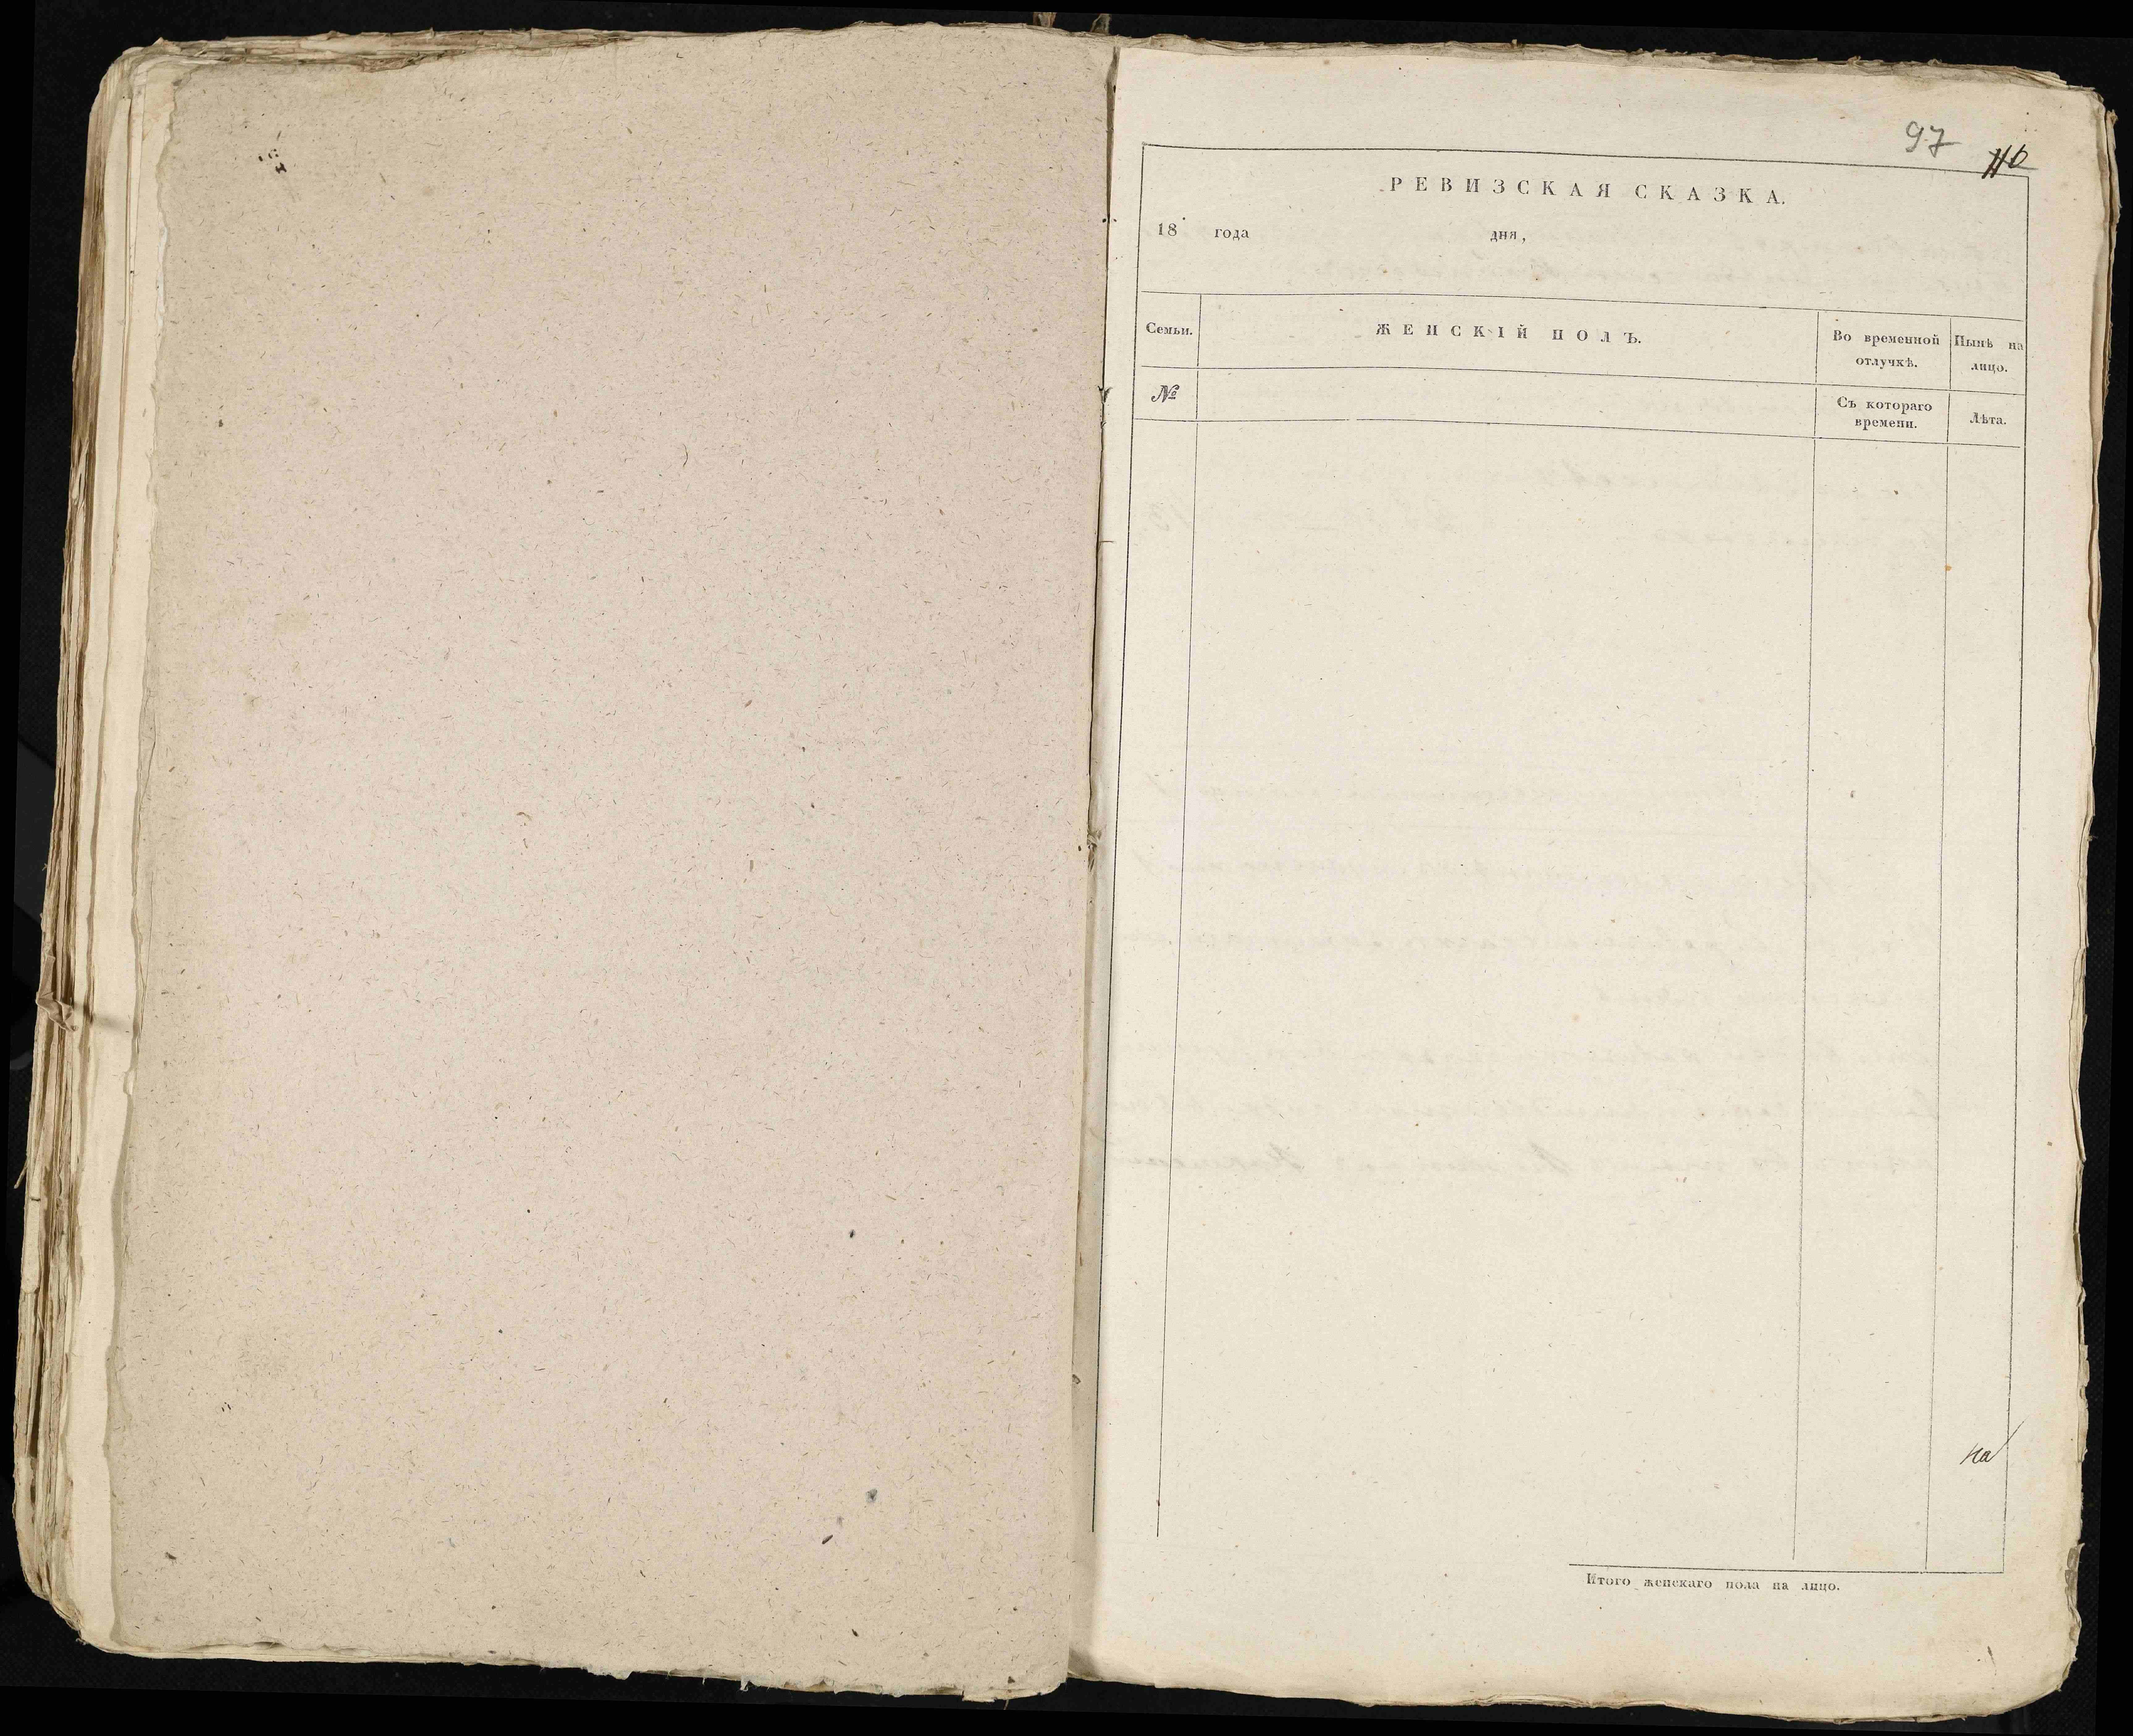 97 110
РЕВИЗСКАЯ СКАЗКА.
18 года дня,
Семьи. ЖЕНСКІЙ ПОЛЪ. Во временной отлучкѣ. Нынѣ на лицо.
№ Съ котораго времени. Лѣта.
на
Итого женскаго пола на лицо.